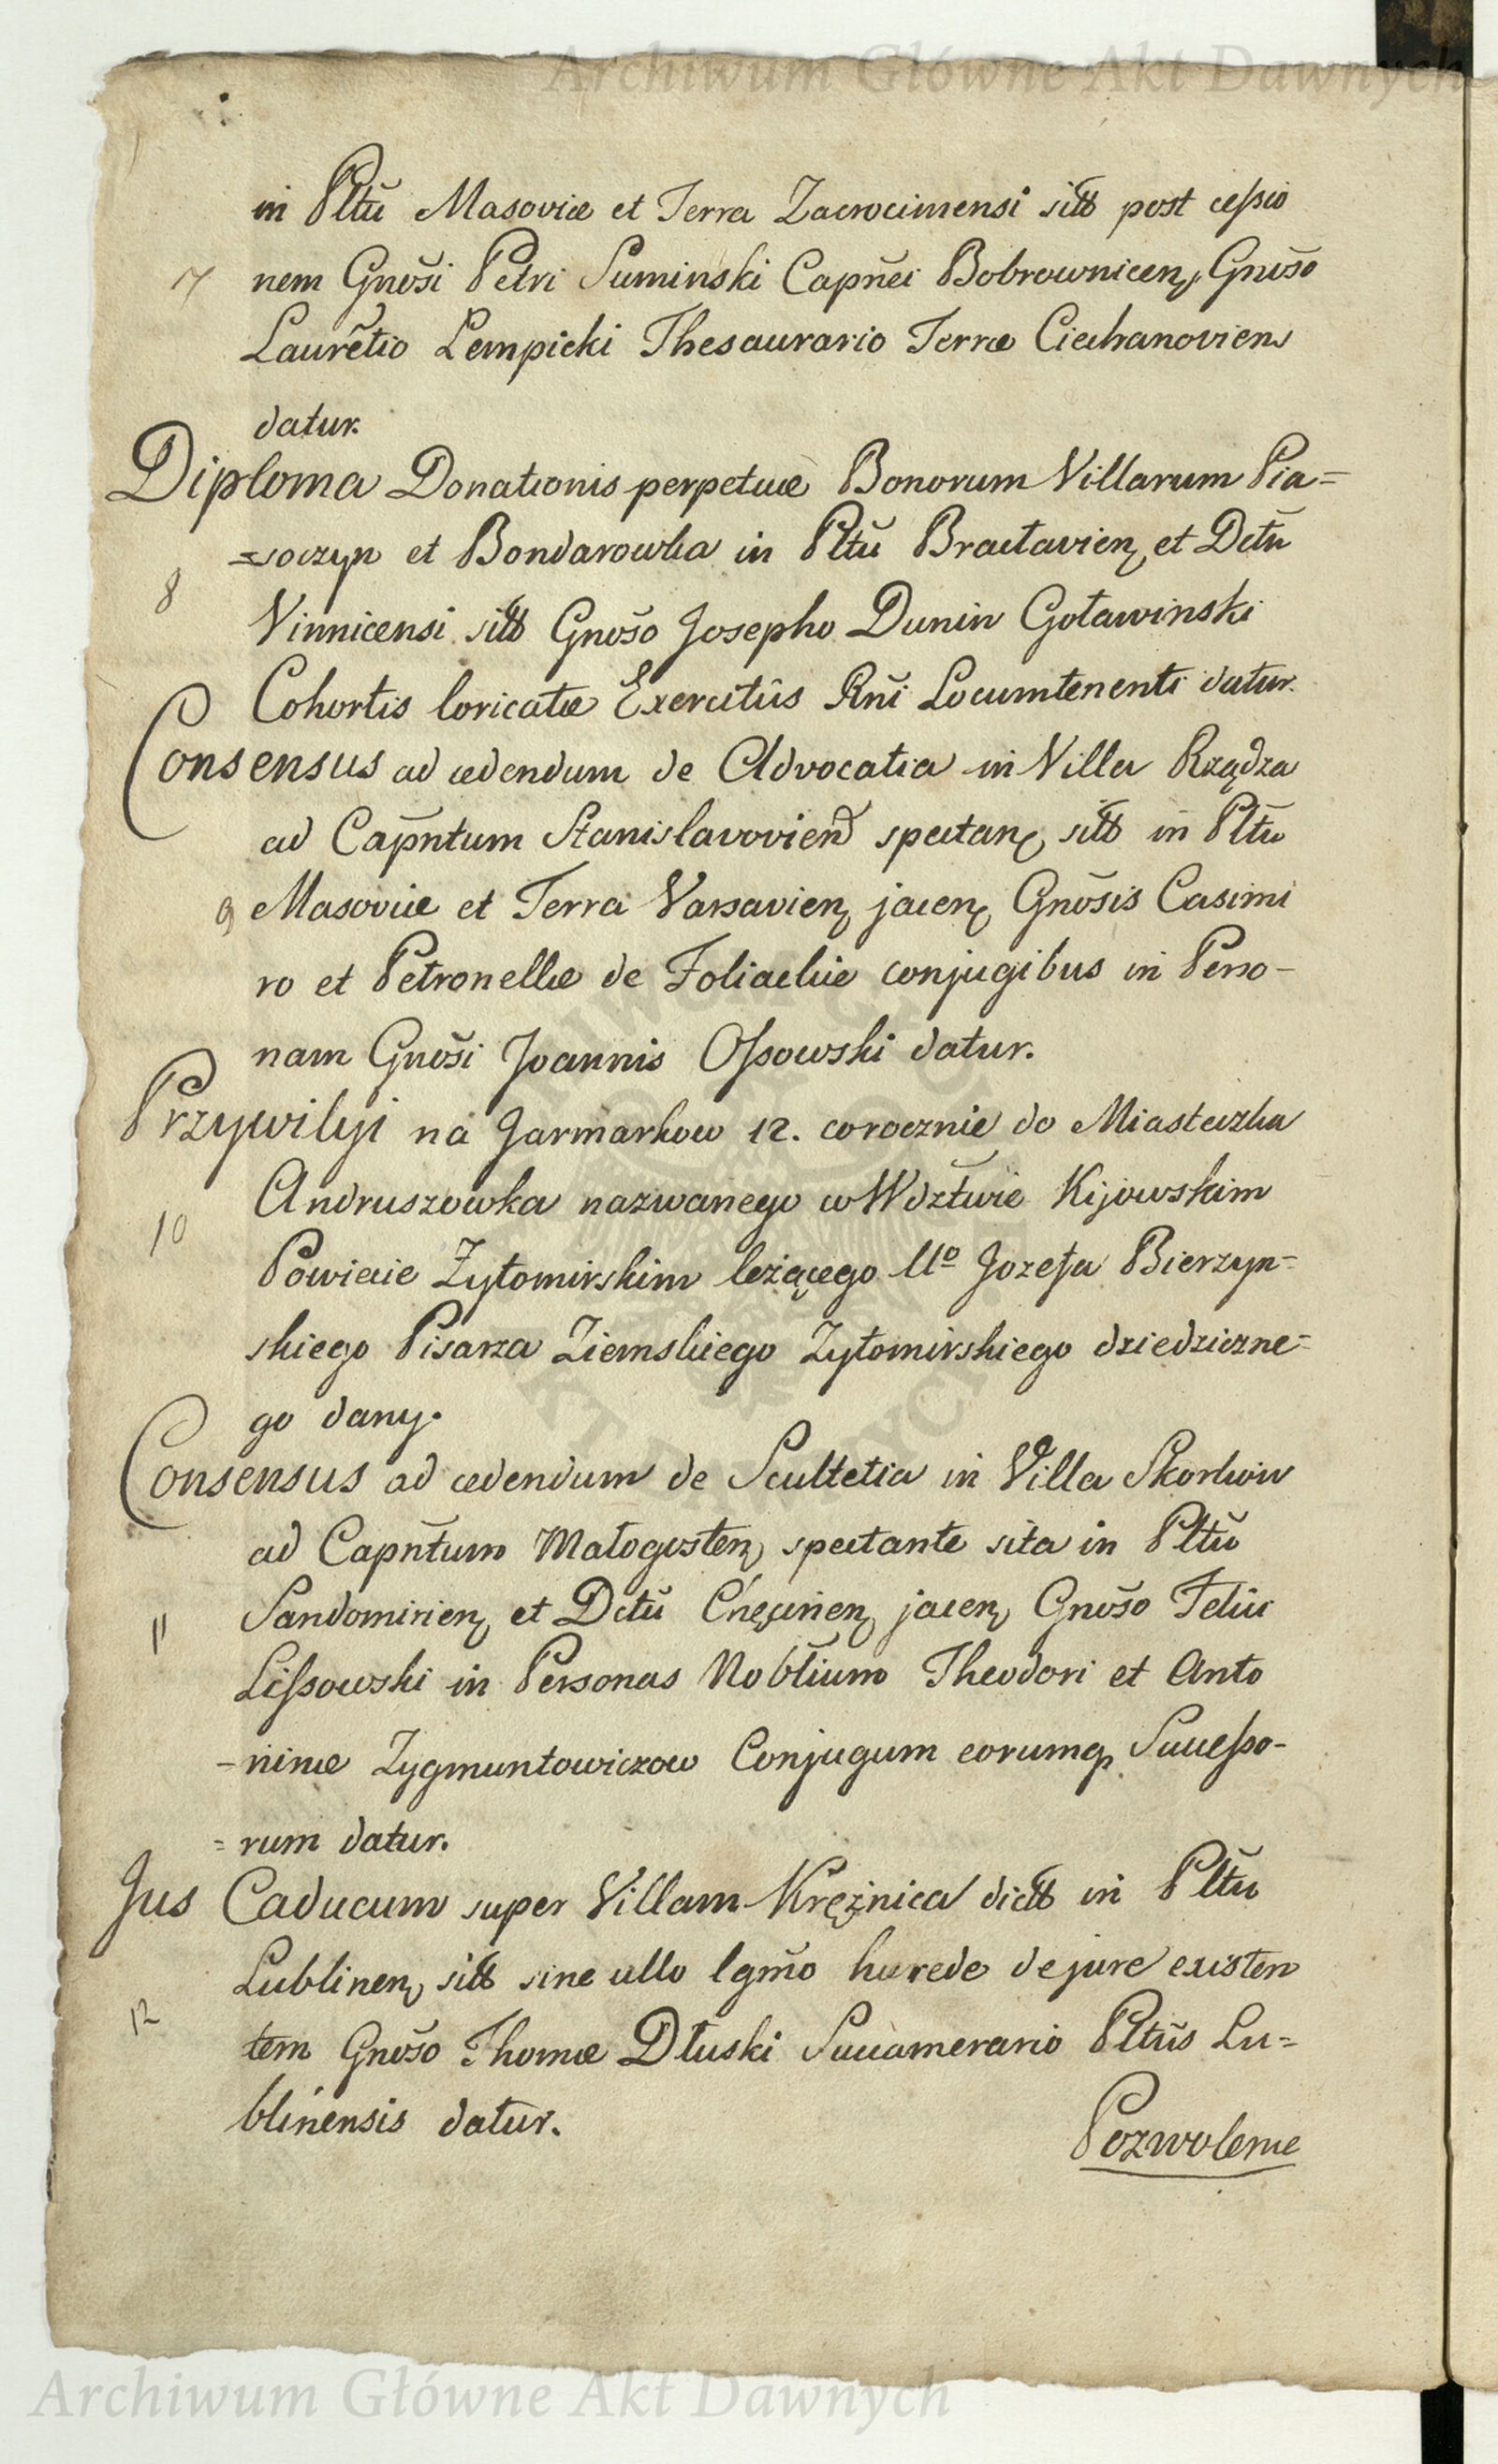 Archiwum Główne Akt Dawnych
in Pltũ Masoviæ et Terra Zacrocimensi sitt post cessio
7 nem Gnõsi Petri Suminski Capñei Bobrownicen, Gnõso
Laurẽtio Lempicki Thesaurario Terræ Ciechanovien
datur.
Diploma Donationis perpetuæ Bonorum Villarum Pia=
=soczyn et Bondarowka in Pltũ Bracłavien, et Dctũ
8 Vinnicensi sitt Gnõso Josepho Dunin Goławinski
Cohortis loricatæ Exercitûs Rñi Locumtenenti datur.
Consensus ad cedendum de Advocatia in Villa Rządza
ad Capñtum Stanislavovien spectan, sitt in Pltũ
9 Masoviæ et Terra Varsavien, jacen, Gnõsis Casimi
ro et Petronellæ de Foliackie conjugibus in Perso-
nam Gnõsi Joannis Ossowski datur.
Przywilyi na Jarmarkow 12. corocznie do Miasteczka
Andruszowka nazwanego w Wdztwie Kijowskim
10 Powiecie Zytomirskim leżącego Uo Jozefa Bierzyn=
skiego Pisarza Ziemskiego Zytomirskiego dziedziczne=
go dany.
Consensus ad cedendum de Scultetia in Villa Skorkow
ad Capñtum Małogosten, spectante sita in Pltũ
11 Sandomirien, et Dctũ Chęcinen, jacen, Gnõso Felici
Lissowski in Personas Nobĩlium Theodori et Anto
-ninæ Zygmuntowiczow Conjugum eorumq, Successo-
=rum datur.
Jus Caducum super Villam Krężnica dictt in Pltũ
Lublinen, sitt sine ullo lgmõ hærede de jure existen
12 tem Gnõso Thomæ Dłuski Succamerario Pltũs Lu=
blinensis datur.
Pozwolenie
Archiwum Główne Akt Dawnych